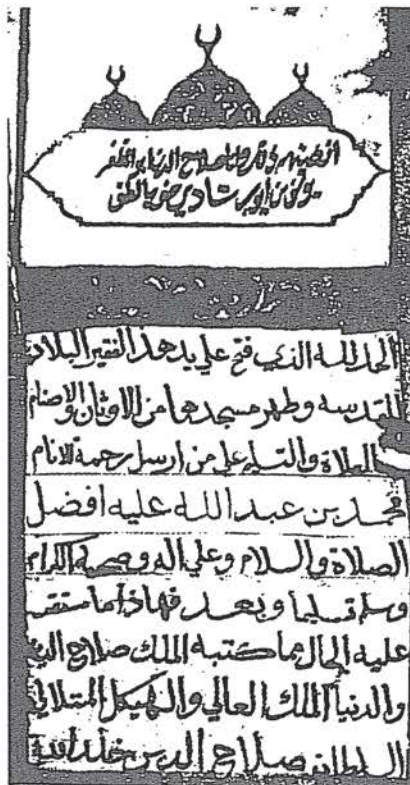 صلاح الدنيا
يوسف بن أيوب بن شادي
الحمد لله الذي فتح علي يد هذا الفقير البلاد
المقدسه وطهر مسجدها من الاوثان والاصنام
والصلاة والتسليم علي من ارسل رحمة للانام
محمد بن عبد الله عليه افضل
الصلاة والسلام وعلي اله وصحبه الكرام
وسلم تسليما وبعد فهاذا ما استقر
عليه الحال مما كتبه الملك صلاح الدين
والدنيا الملك العالي والهيكل المتلالي
السلطان صلاح الدين خلد الله